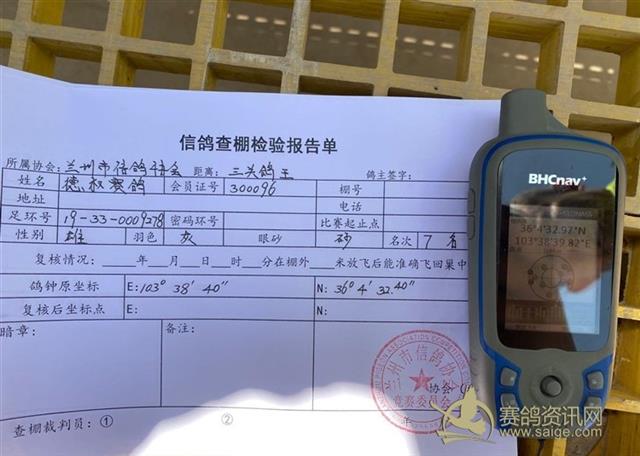 信鸽查棚检验报告单
所属协会：兰州市信鸽协会 距离：三关鸽王 鸽主签字：
姓名 德权赛鸽 会员证号 300096 棚号
地址 电话
足环号 19-33-0009278 密码环号 比赛起止点
性别 雄 羽色 灰 眼砂 砂 名次 7名
复核情况：年 月 日 时 分在棚外 米放飞后能准确飞回巢中
鸽钟原坐标 E:103° 38' 40" N: 36° 4' 32.40"
复核后坐标点 E: N:
暗章： 备注：
兰州市信鸽协会
竞赛委员会
协会
年
查棚裁判员：① ②
BHCnav
36°4'32.97"N
103°38'39.82"E
赛鸽资讯网
www.saige.com